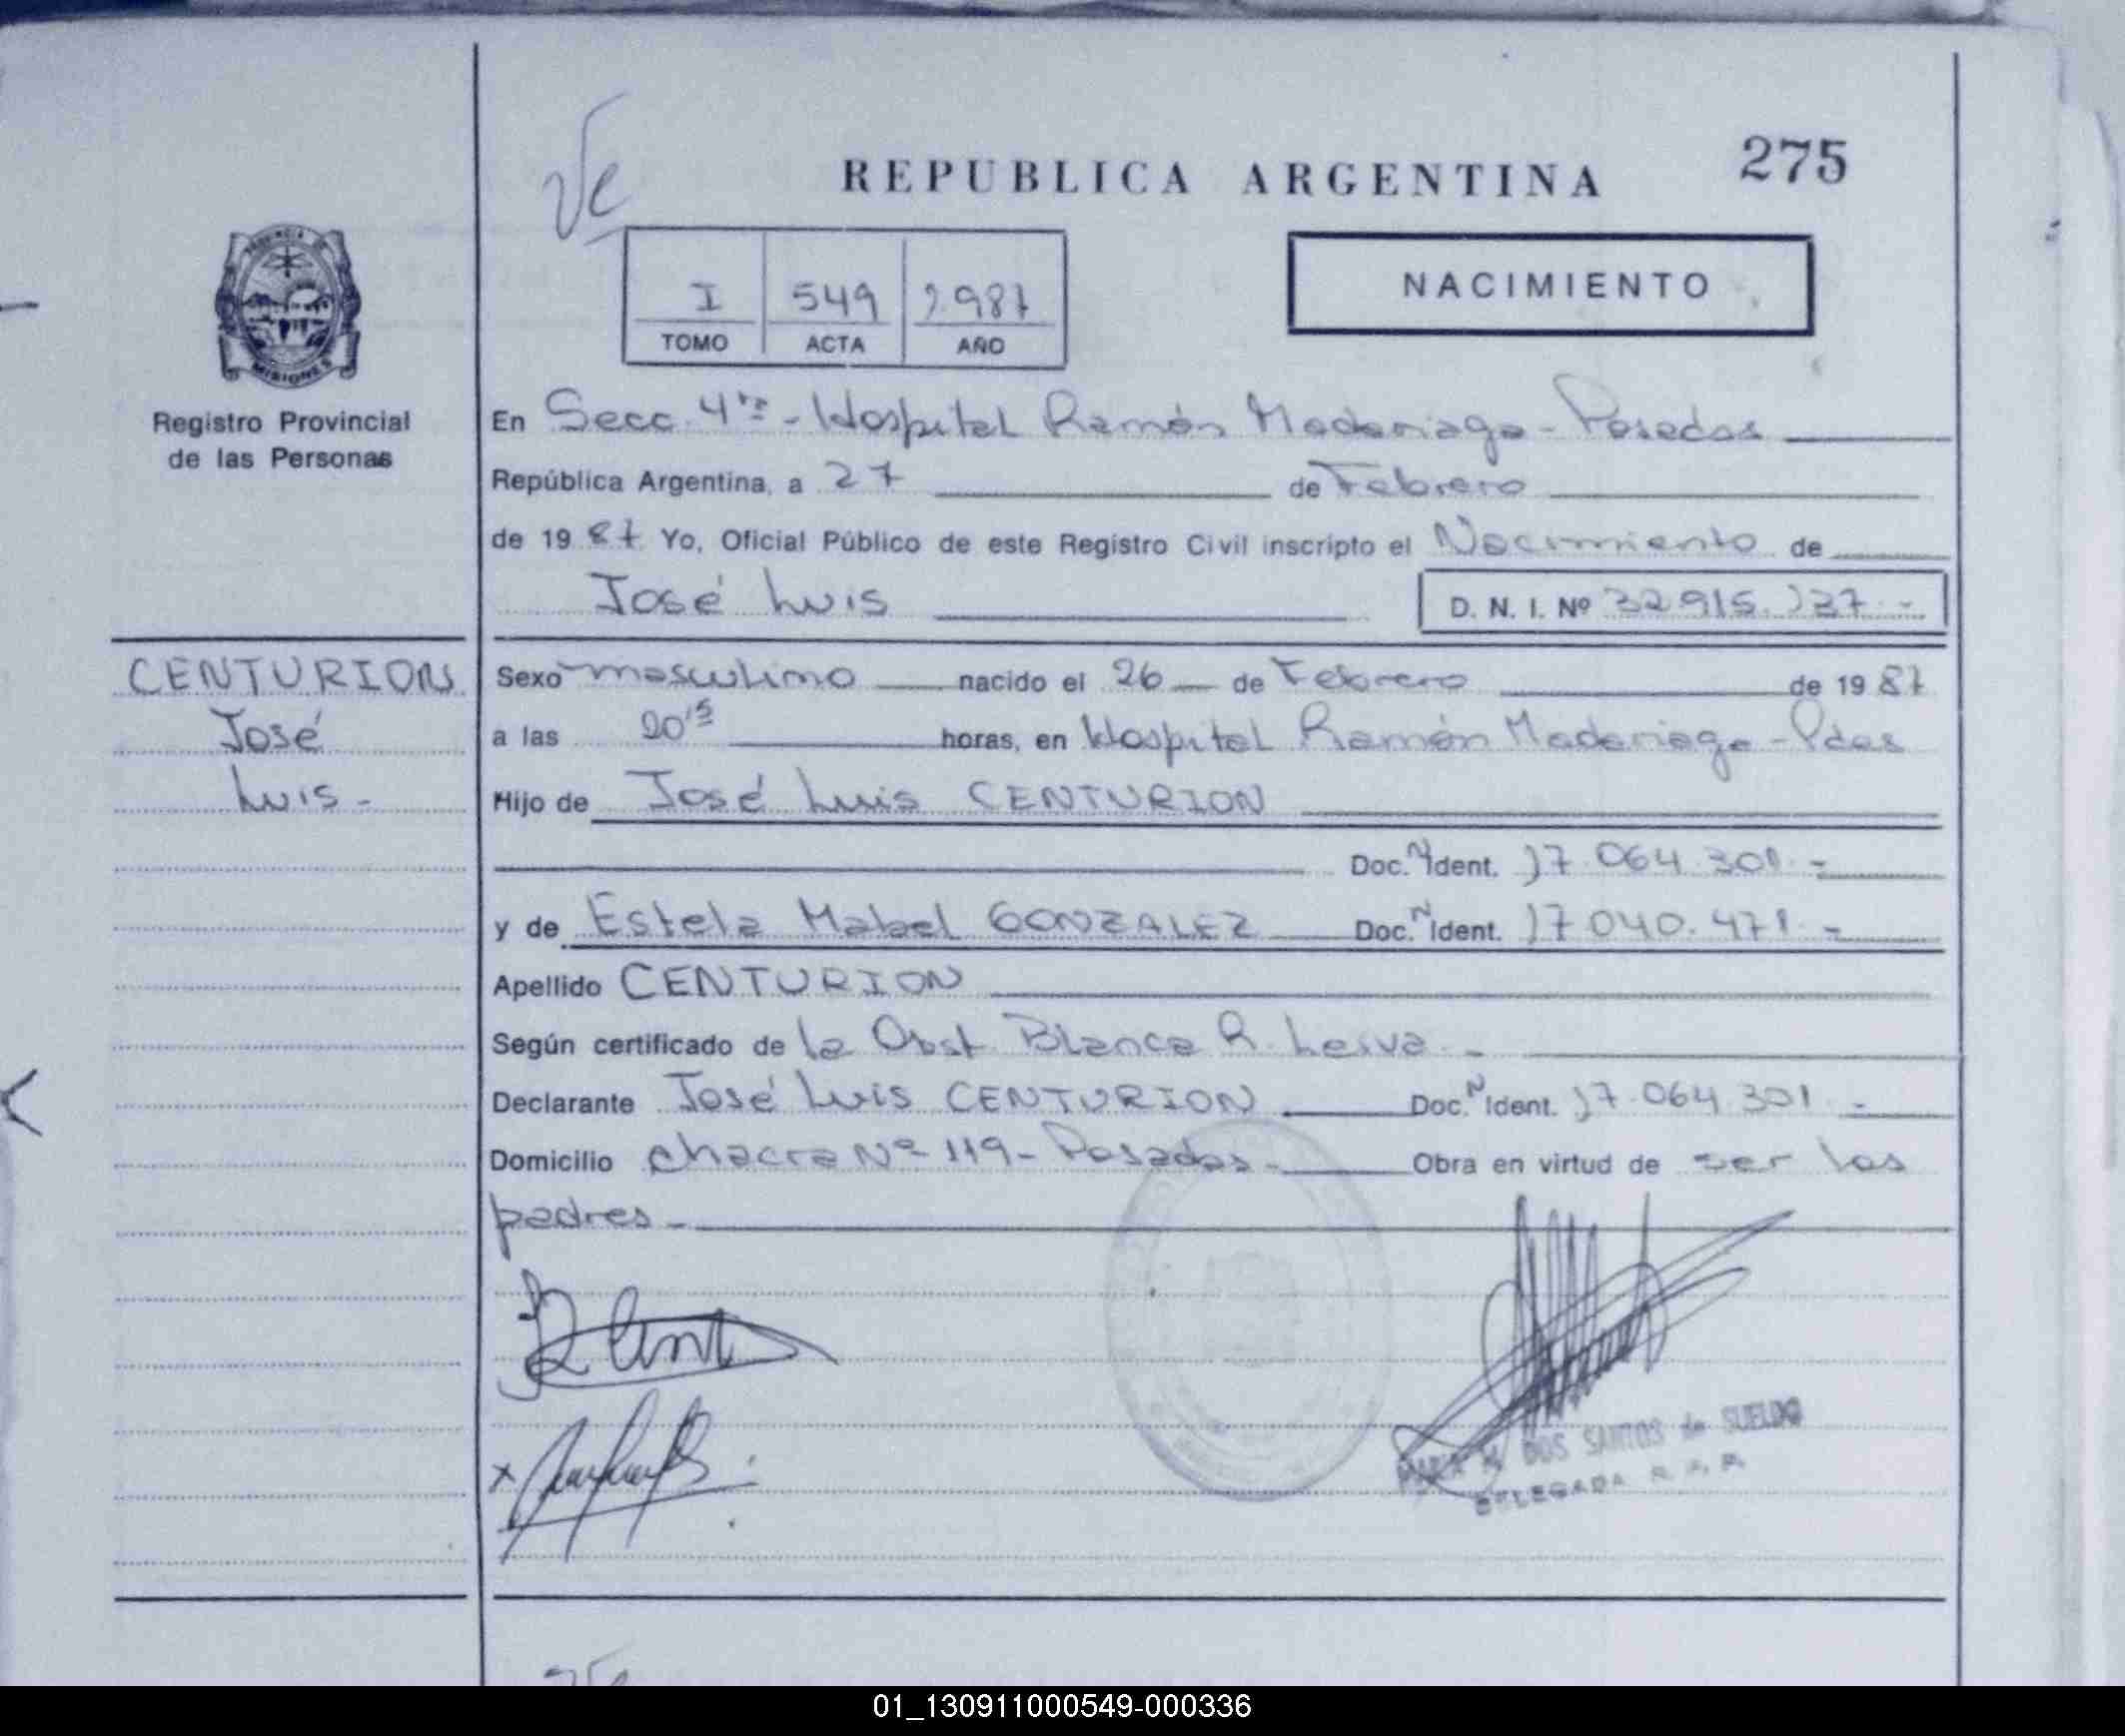 275
REPUBLICA ARGENTINA
NACIMIENTO
I 549 1.987
TOMO ACTA AÑO
PROVINCIA DE
MISIONES
Registro Provincial
de las Personas
En Secc. 4ta - Hospital Ramón Madariaga - Posadas
República Argentina, a 27 de Febrero
de 1987 Yo, Oficial Público de este Registro Civil inscripto el Nacimiento de
José Luis D. N. I. Nº 32.915.137.-
CENTURION
José
Luis.-
Sexo masculino nacido el 26 de Febrero de 1987
a las 20 15 horas, en Hospital Ramón Madariaga - Pdas
Hijo de José Luis CENTURION
Doc. N Ident. 17.064.301.-
y de Estela Mabel GONZALEZ Doc. N Ident. 17.040.471.-
Apellido CENTURION
Según certificado de la Obst. Blanca R. Leiva.-
Declarante José Luis CENTURION Doc. N Ident. 17.064.301.-
Domicilio Chacra Nº 119 - Posadas.- Obra en virtud de ser los
padres.-
MARIA DOS SANTOS de SUELDO
DELEGADA R. P. P.
01_130911000549-000336